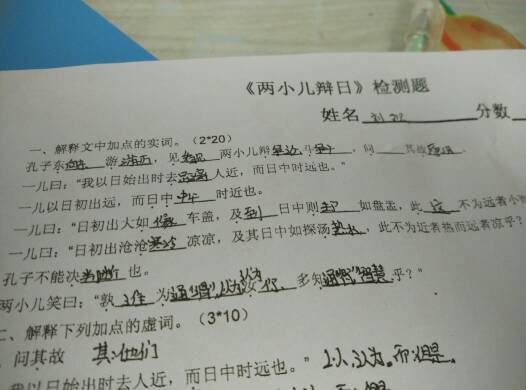 《两小儿辩日》检测题
姓名 分数
一、解释文中加点的实词。（2*20）
孔子东 向东 游 游历，见 看见 两小儿辩 斗 ，问 其故 原因。
一儿曰：“我以日始出时去 距离 人近，而日中时远也。”
一儿以日初出远，而日中 中午 时近也。
一儿曰：“日初出大如 像 车盖，及 到 日中则 如盘盂，此 这 不为远者小而
一儿曰：“日初出沧沧 寒冷 凉凉，及其日中如探汤 热水，此不为近者热而远者凉乎？
孔子不能决 判断 也。
两小儿笑曰：“孰 谁 为 通“谓”认为 汝 你 多知 通“智”智慧 乎？”
二、解释下列加点的虚词。（3*10）
问其故 其:他们
我以日始出时去人近，而日中时远也。” 以:认为。而:但是。